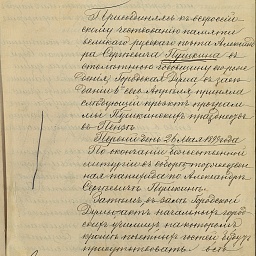 Присоединяясь къ всероссій-
скому чествованію памяти
великаго русскаго поэта Александ-
ра Сергѣевича Пушкина въ
столѣтнюю годовщину его рож-
денія, Городская Дума въ засѣ-
даніи 6 сего Апрѣля приняла
слѣдующій проектъ програм-
мы Пушкинскихъ празднествъ
въ Пензѣ.
Первый день 26 Мая 1899 года
По окончаніи божественной
литургіи въ соборѣ торжествен-
ная панихида по Александрѣ
Сергѣевичѣ Пушкинѣ.
Затѣмъ, въ залѣ Городской
Думы актъ начальныхъ город-
скихъ училищъ на которомъ
кромѣ почетныхъ гостей будутъ
присутствовать всѣ